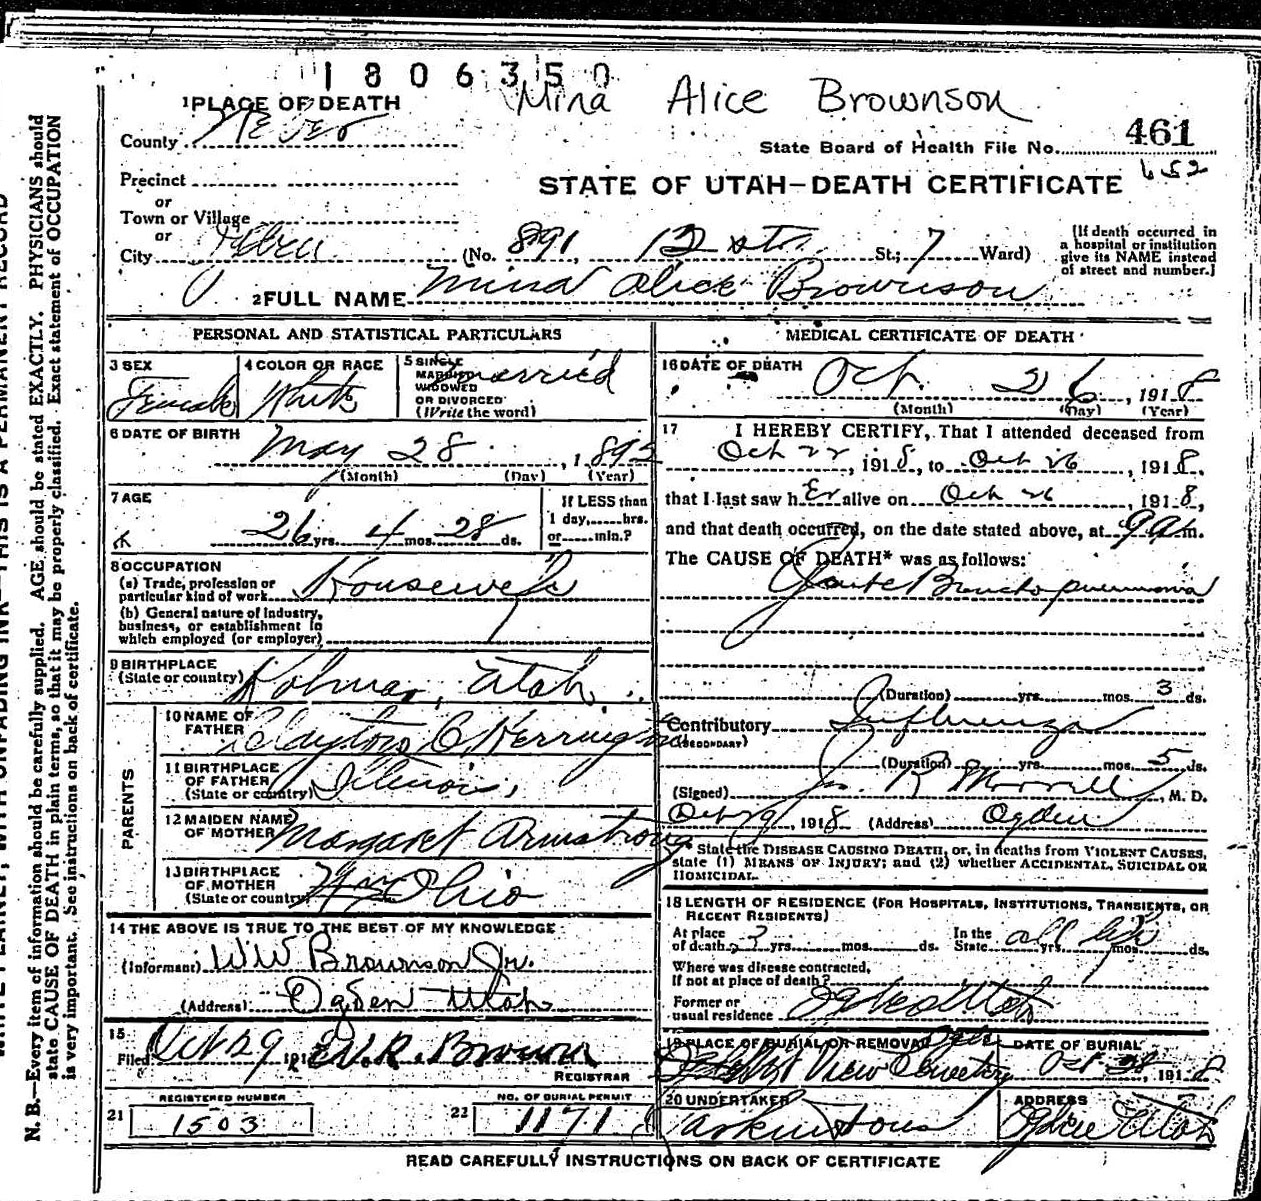 1806350
Mina Alice Brownson
1 PLACE OF DEATH
County Weber
State Board of Health File No. 461
652
Precinct
STATE OF UTAH—DEATH CERTIFICATE
or
Town or Village
or
City Ogden (No. 891, 12 St.; 7 Ward)
(If death occurred in
a hospital or institution
give its NAME instead
of street and number.)
2 FULL NAME Mina Alice Brownson
PERSONAL AND STATISTICAL PARTICULARS
3 SEX Female
4 COLOR OR RACE White
5 SINGLE
MARRIED
WIDOWED
OR DIVORCED
(Write the word)
married
6 DATE OF BIRTH
May 28, 1892
(Month) (Day) (Year)
7 AGE
26 yrs. 4 mos. 28 ds.
If LESS than
1 day,......hrs.
or......min.?
8 OCCUPATION
(a) Trade, profession or
particular kind of work Housewife
(b) General nature of Industry,
business, or establishment in
which employed (or employer)
9 BIRTHPLACE
(State or country) Utah
PARENTS
10 NAME OF
FATHER Clayton C. Herrington
11 BIRTHPLACE
OF FATHER
(State or country) Illinois
12 MAIDEN NAME
OF MOTHER Margaret Armstrong
13 BIRTHPLACE
OF MOTHER
(State or country) Ohio
14 THE ABOVE IS TRUE TO THE BEST OF MY KNOWLEDGE
(Informant) W W Brownson Jr.
(Address) Ogden Utah
15
Filed Oct 29 191 W. R. Brown
REGISTRAR
21 REGISTERED NUMBER
1503
22 NO. OF BURIAL PERMIT
1171
MEDICAL CERTIFICATE OF DEATH
16 DATE OF DEATH
Oct. 26, 1918
(Month) (Day) (Year)
17 I HEREBY CERTIFY, That I attended deceased from
Oct 22, 1918, to Oct 26, 1918,
that I last saw her alive on Oct 26, 1918,
and that death occurred, on the date stated above, at 9 a m.
The CAUSE OF DEATH* was as follows:
Acute Bronchopneumonia
(Duration) yrs. mos. 3 ds.
Contributory Influenza
(SECONDARY)
(Duration) yrs. mos. 5 ds.
(Signed) R Morrell, M. D.
Oct 29, 1918 (Address) Ogden
* State the DISEASE CAUSING DEATH, or, in deaths from VIOLENT CAUSES,
state (1) MEANS OF INJURY; and (2) whether ACCIDENTAL, SUICIDAL OR
HOMICIDAL.
18 LENGTH OF RESIDENCE (FOR HOSPITALS, INSTITUTIONS, TRANSIENTS, OR
RECENT RESIDENTS)
At place
of death ? yrs. mos. ds.
In the
State all life yrs. mos. ds.
Where was disease contracted,
if not at place of death?
Former or
usual residence Ogden Utah
19 PLACE OF BURIAL OR REMOVAL
View Cemetery
DATE OF BURIAL
Oct 1918
20 UNDERTAKER
Larkin & Sons
ADDRESS
Ogden Utah
READ CAREFULLY INSTRUCTIONS ON BACK OF CERTIFICATE
WRITE PLAINLY, WITH UNFADING INK—THIS IS A PERMANENT RECORD
N. B.—Every item of information should be carefully supplied. AGE should be stated EXACTLY. PHYSICIANS should
state CAUSE OF DEATH in plain terms, so that it may be properly classified. Exact statement of OCCUPATION
is very important. See instructions on back of certificate.